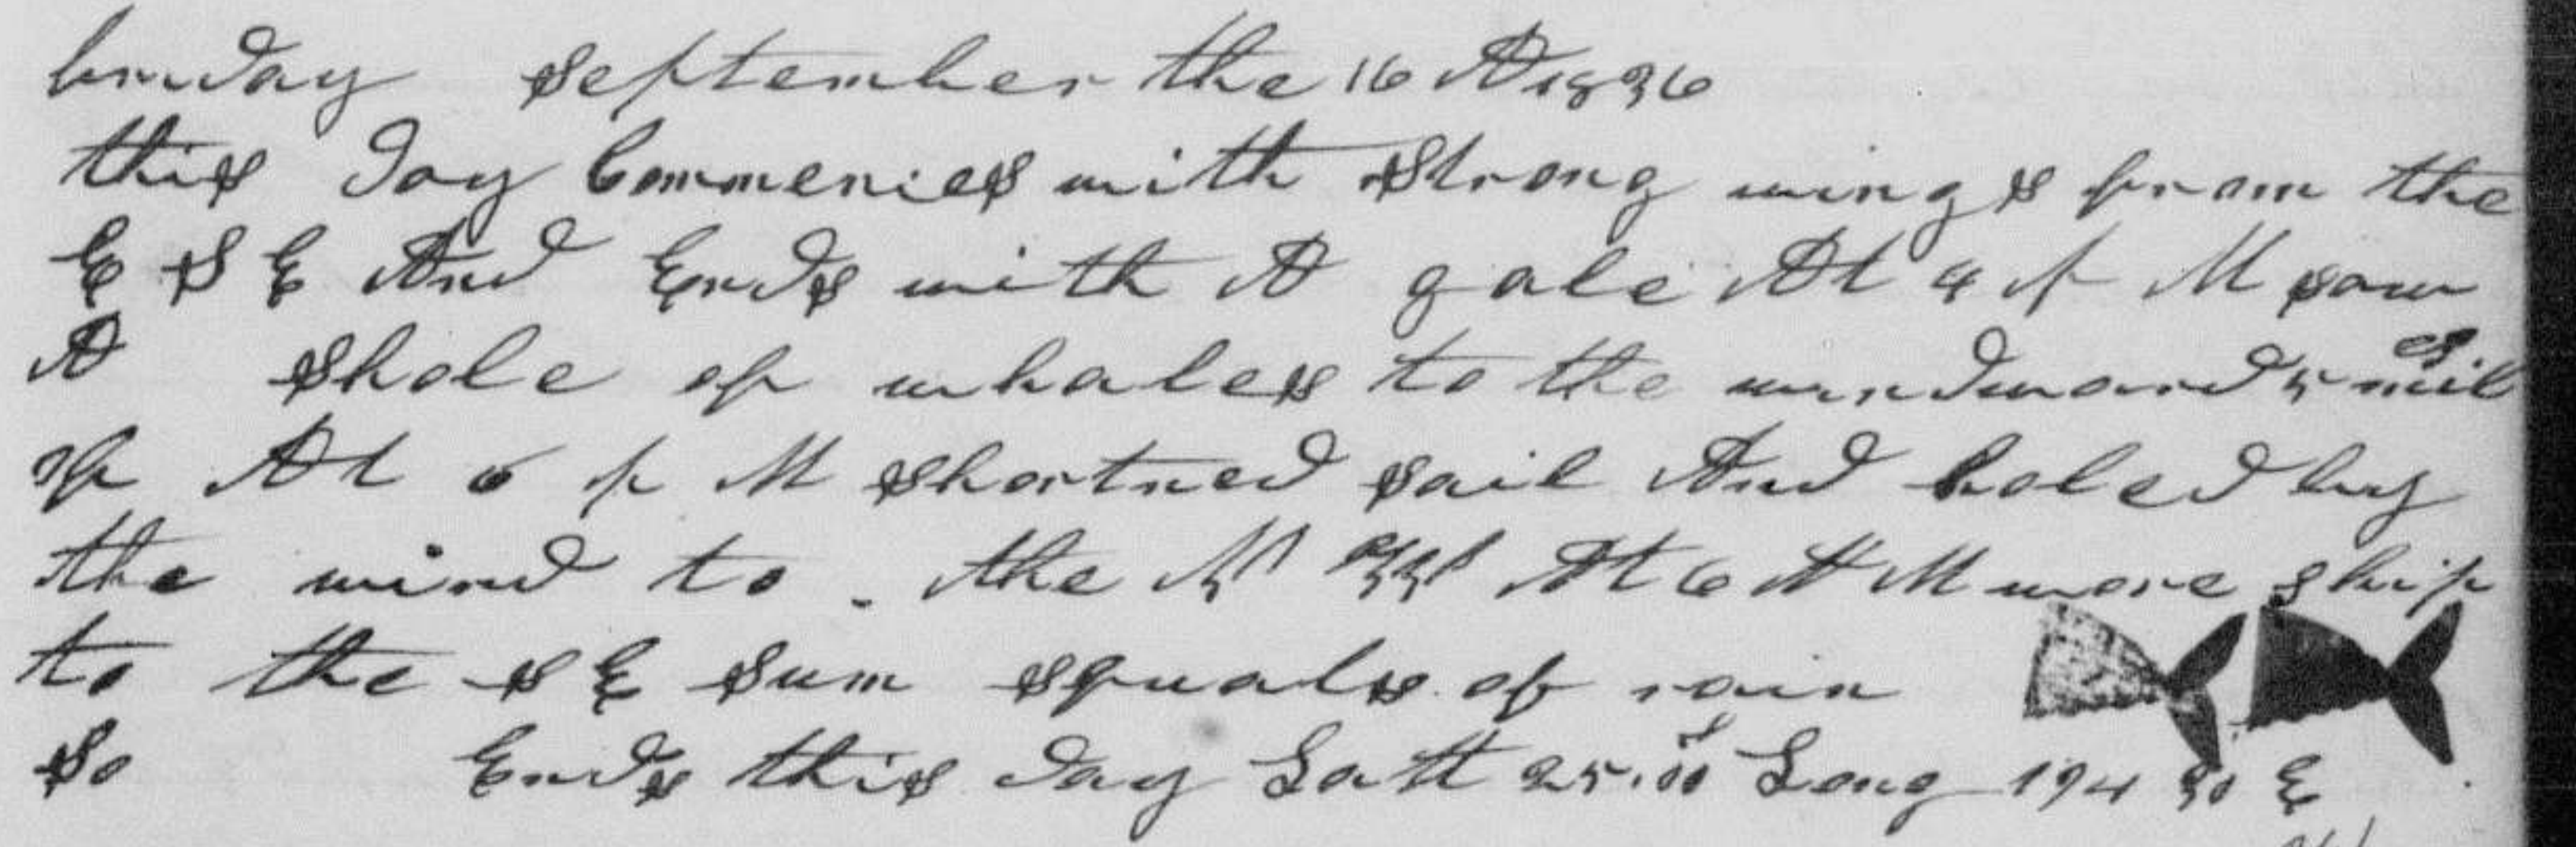 lunday september the 16 A 1836
this day Commencies with strong wings from the
E S E And Ends with A gale At 4 p M saw
A shole of whales to the windward 5 miles
of At 6 p M shortned sail And haled by
the wind to the N At 6 A M wore ship
to the s E sum squals of rain
so Ends this day Latt 25.00 Long 194 30 E